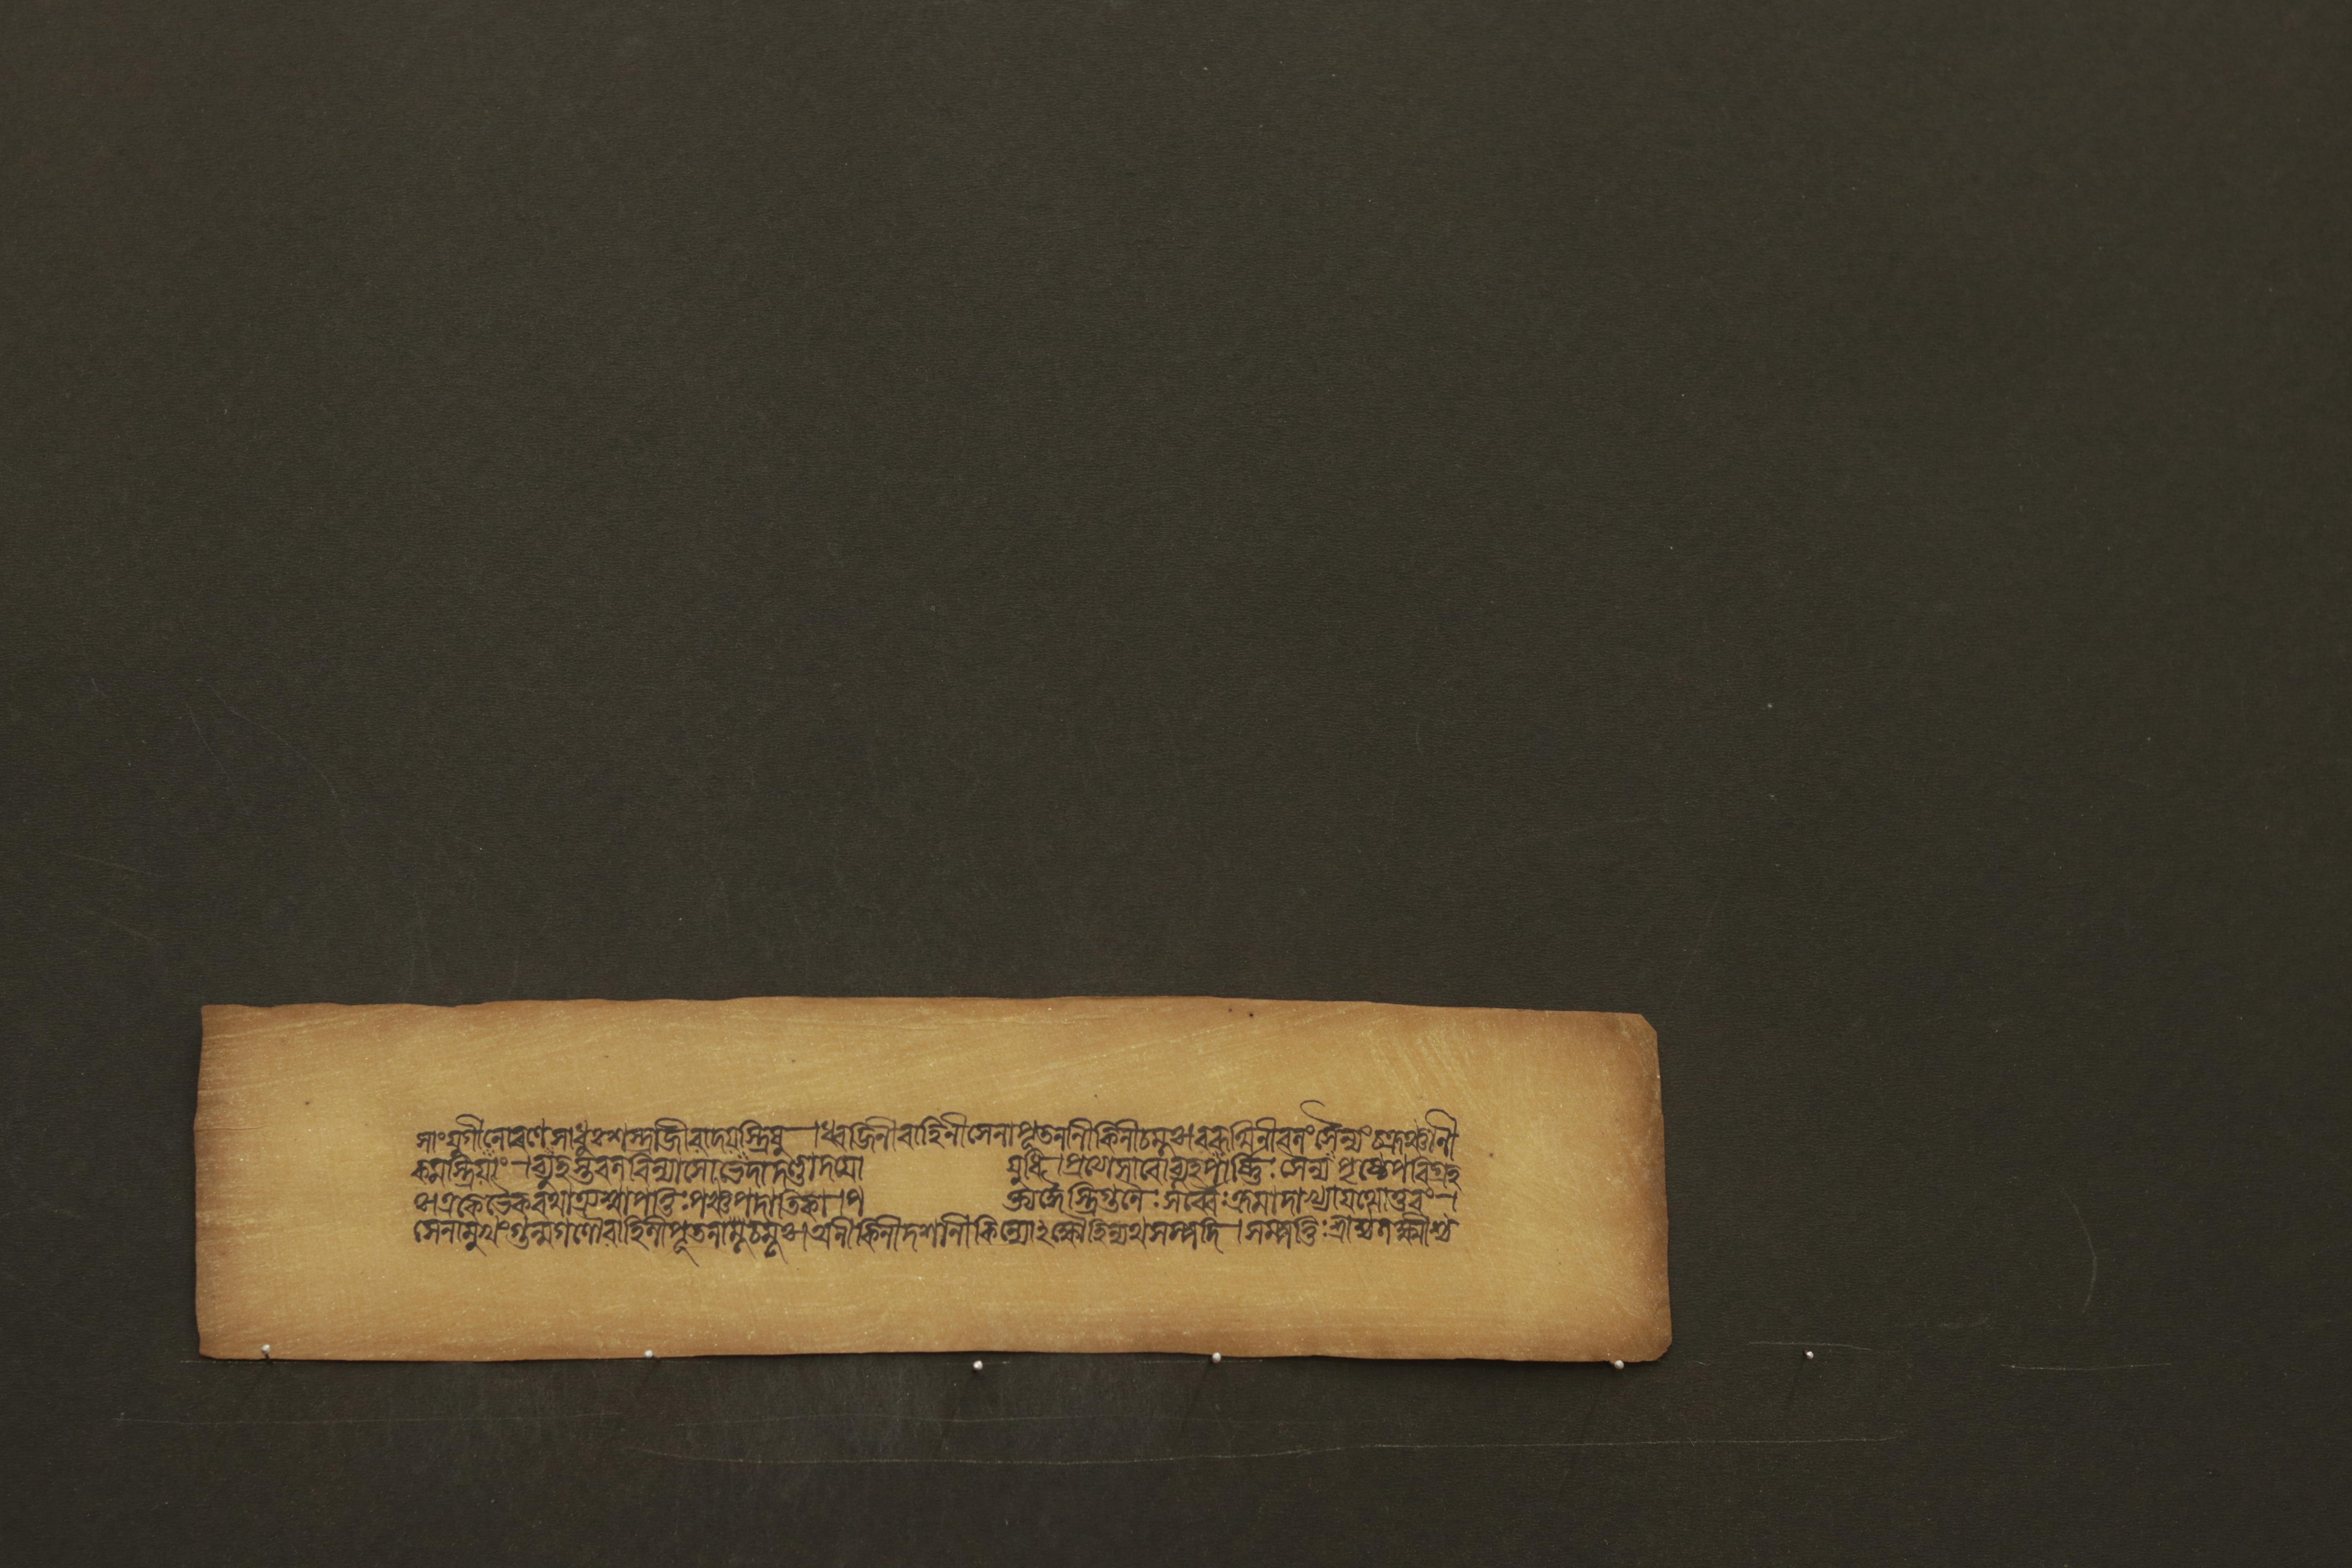 সাংযুগীনোৰণেসাধুঃশস্ত্রাজীবাদযস্ত্রিষু ।ধ্বজিনীবাহিনীসেনাপৃতনানীকিনীচমূঃ।বৰূথিনীবলংসৈন্যংচক্রঞ্চানী
কমস্ত্রিযাং ।ব্যূহস্তুবলবিন্যাসোভেদাদণ্ডাদযো যুধি ।প্রত্যাসাৰোব্যূহপার্ষ্ণিঃ সৈন্যপৃষ্ঠেপৰিগ্রহ
ঃ।একেভৈকৰথাত্র্যশ্বাপত্তিঃপঞ্চপদাতিকা ।প ত্ত্যঙ্গৈস্ত্রিগুণৈঃসর্ব্বৈঃক্রমাদাখ্যাযথোত্তৰং ।
সেনামুখংগুল্মগণৌবাহিনীপৃতনাচমূঃ।অনীকিনীদশানীকিন্যোঽক্ষৌহিণ্যথসম্পদি ।সম্পত্তিঃশ্রীশ্চলক্ষ্মীশ্চ